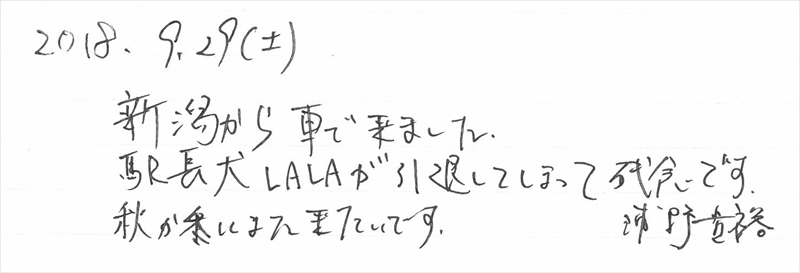 2018. 9. 29(土)
新潟から車で来ました.
駅長犬LALAが引退してしまって残念です.
秋か冬にまた来たいです. 浦野貴裕